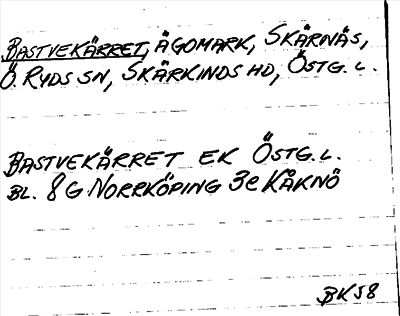 BASTVEKÄRRET, ÄGOMARK, SKÄRNÄS,
Ö. RYDS SN, SKÄRKINDS HD, ÖSTG. L.
BASTVEKÄRRET EK ÖSTG. L.
BL. 8G NORRKÖPING 3e KÅKNÖ
BK58